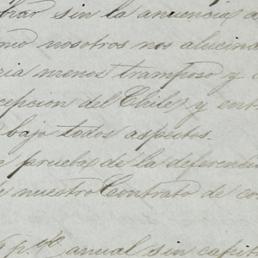 sin la anuencia a
nosotros nos alucina
menos tramposo y
cepcion del Chile, y ent
bajo todos aspectos.
prueba de la deferen
nuestro Contrato de co
anual sin capit